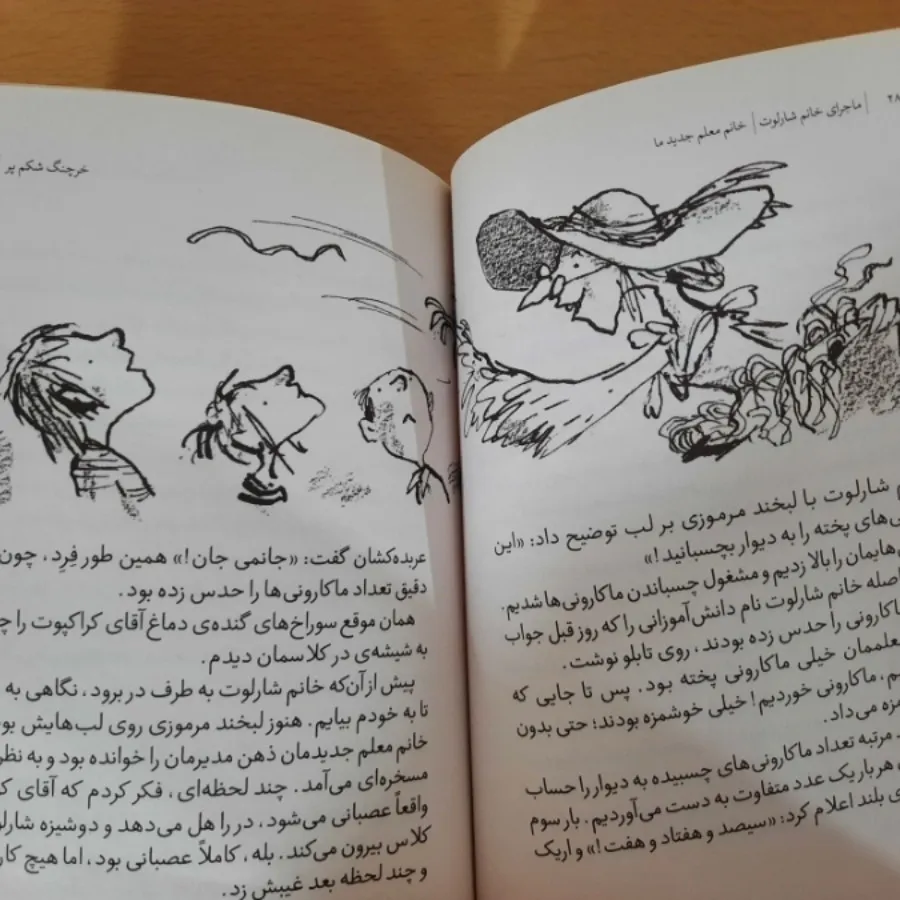 ۲۸ | ماجرای خانم شارلوت | خانم معلم جدید ما
شارلوت با لبخند مرموزی بر لب توضیح داد: «این
پخته را به دیوار بچسبانید!»
را بالا زدیم و مشغول چسباندن ماکارونی‌ها شدیم.
خانم شارلوت نام دانش‌آموزانی را که روز قبل جواب
ماکارونی را حدس زده بودند، روی تابلو نوشت.
خیلی ماکارونی پخته بود. پس تا جایی که
ماکارونی خوردیم! خیلی خوشمزه بودند؛ حتی بدون
می‌داد.
مرتبه تعداد ماکارونی‌های چسبیده به دیوار را حساب
هربار یک عدد متفاوت به دست می‌آوردیم. بار سوم
بلند اعلام کرد: «سیصد و هفتاد و هفت!» و اریک
خرچنگ شکم پر
عربده‌کشان گفت: «جانمی جان!» همین طور فِرِد، چون
دقیق تعداد ماکارونی‌ها را حدس زده بود.
همان موقع سوراخ‌های گنده‌ی دماغ آقای کراکپوت را
به شیشه‌ی در کلاسمان دیدم.
پیش از آن‌که خانم شارلوت به طرف در برود، نگاهی به
تا به خودم بیایم. هنوز لبخند مرموزی روی لب‌هایش
خانم معلم جدیدمان ذهن مدیرمان را خوانده بود و به
مسخره‌ای می‌آمد. چند لحظه‌ای، فکر کردم که آقای
واقعاً عصبانی می‌شود، در را هل می‌دهد و دوشیزه
کلاس بیرون می‌کند. بله، کاملاً عصبانی بود، اما هیچ
و چند لحظه بعد غیبش زد.